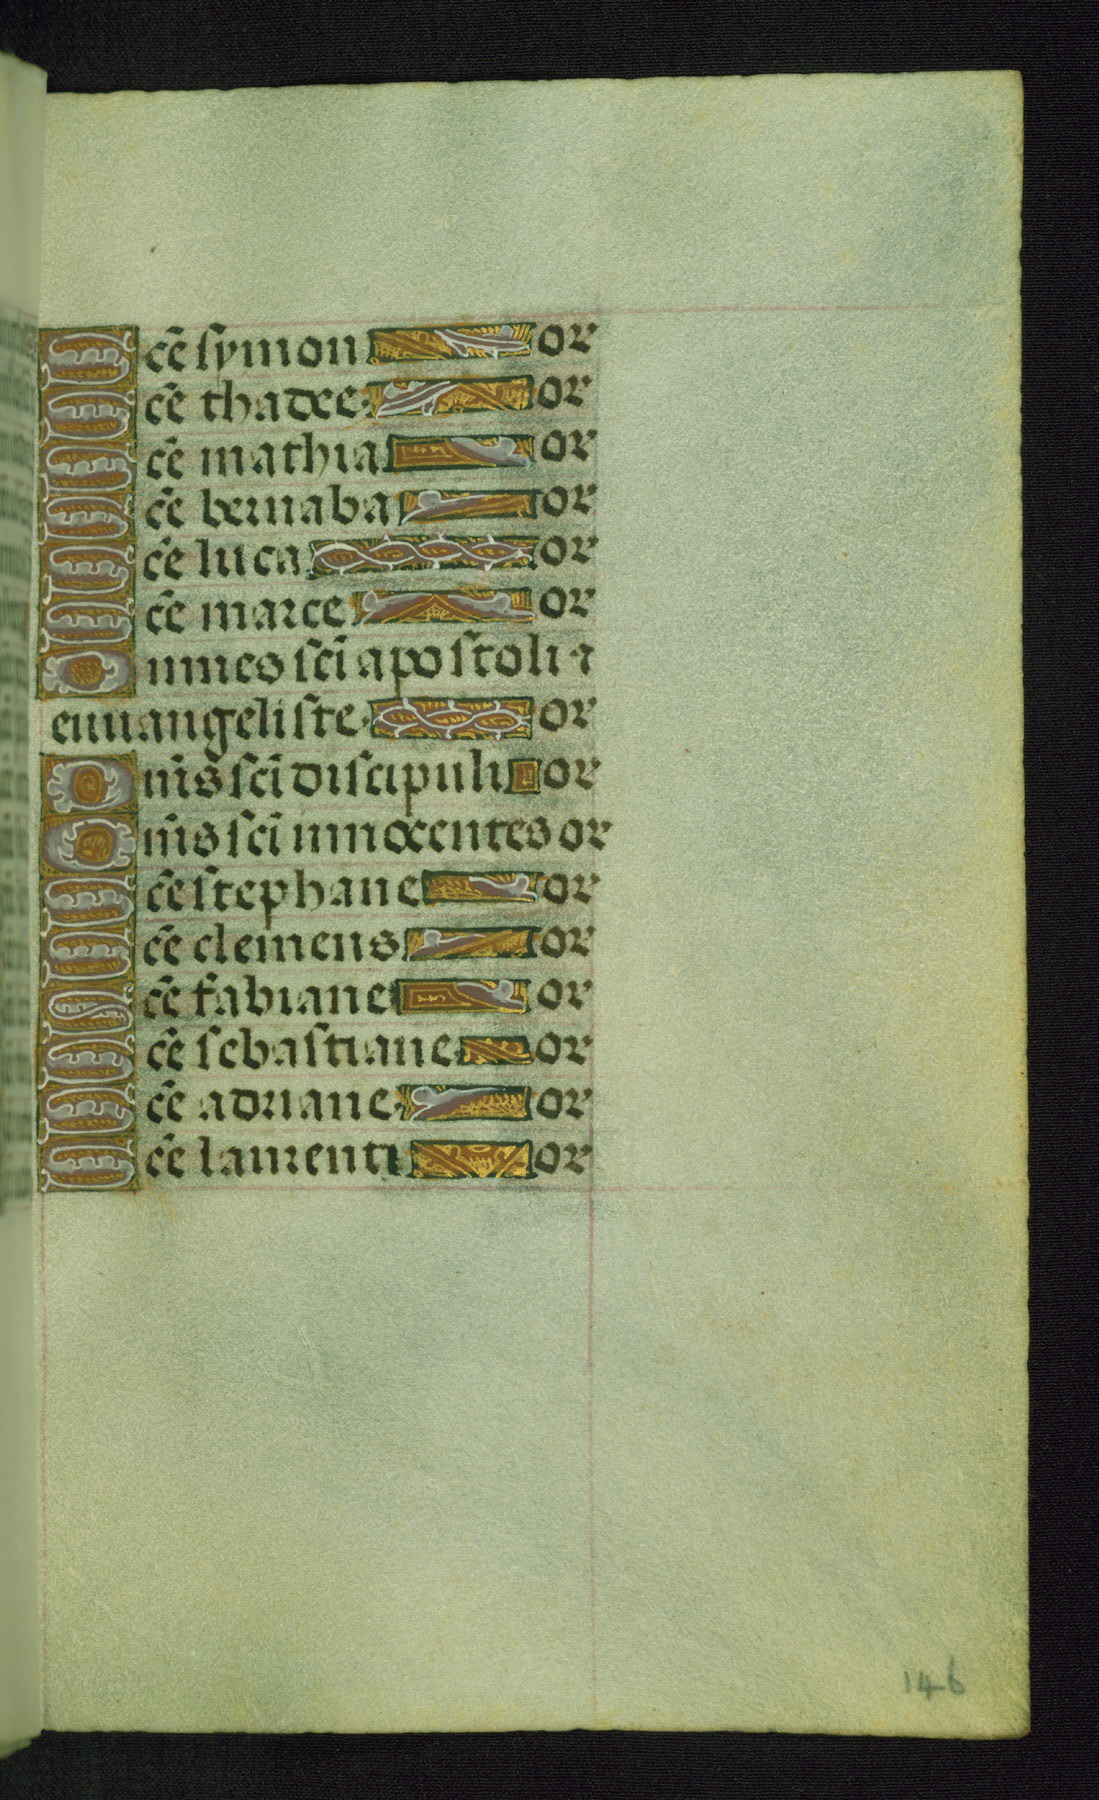 Sc̃e symon or
Sc̃e thadee or
Sc̃e mathia or
Sc̃e bernaba or
Sc̃e luca or
Sc̃e marce or
Omnes sc̃i apostoli ⁊
euuangeliste or
Om̃s sc̃i discipuli or
Om̃s sc̃i innocentes or
Sc̃e stephane or
Sc̃e clemens or
Sc̃e fabiane or
Sc̃e sebastiane or
Sc̃e adriane or
Sc̃e laurenti or
146